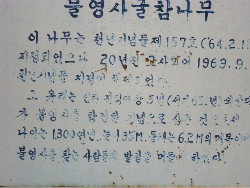 불영사굴참나무
이 나무는 천년기념물 제157호('64.2.1
지정되었으나 20년전 고사되어 1969.8.
천년기념물 지정이 해제되었다.
그 유래는 신라 진덕여왕 5년(서기 651년) 의상대
가 불영사를 창건한 기념으로 심은 것으로서
나이는 1,300여년, 높이 35M, 둘레는 6.2M의 거목이며
불영사를 찾는 사람들의 발길을 머물게 하였다.